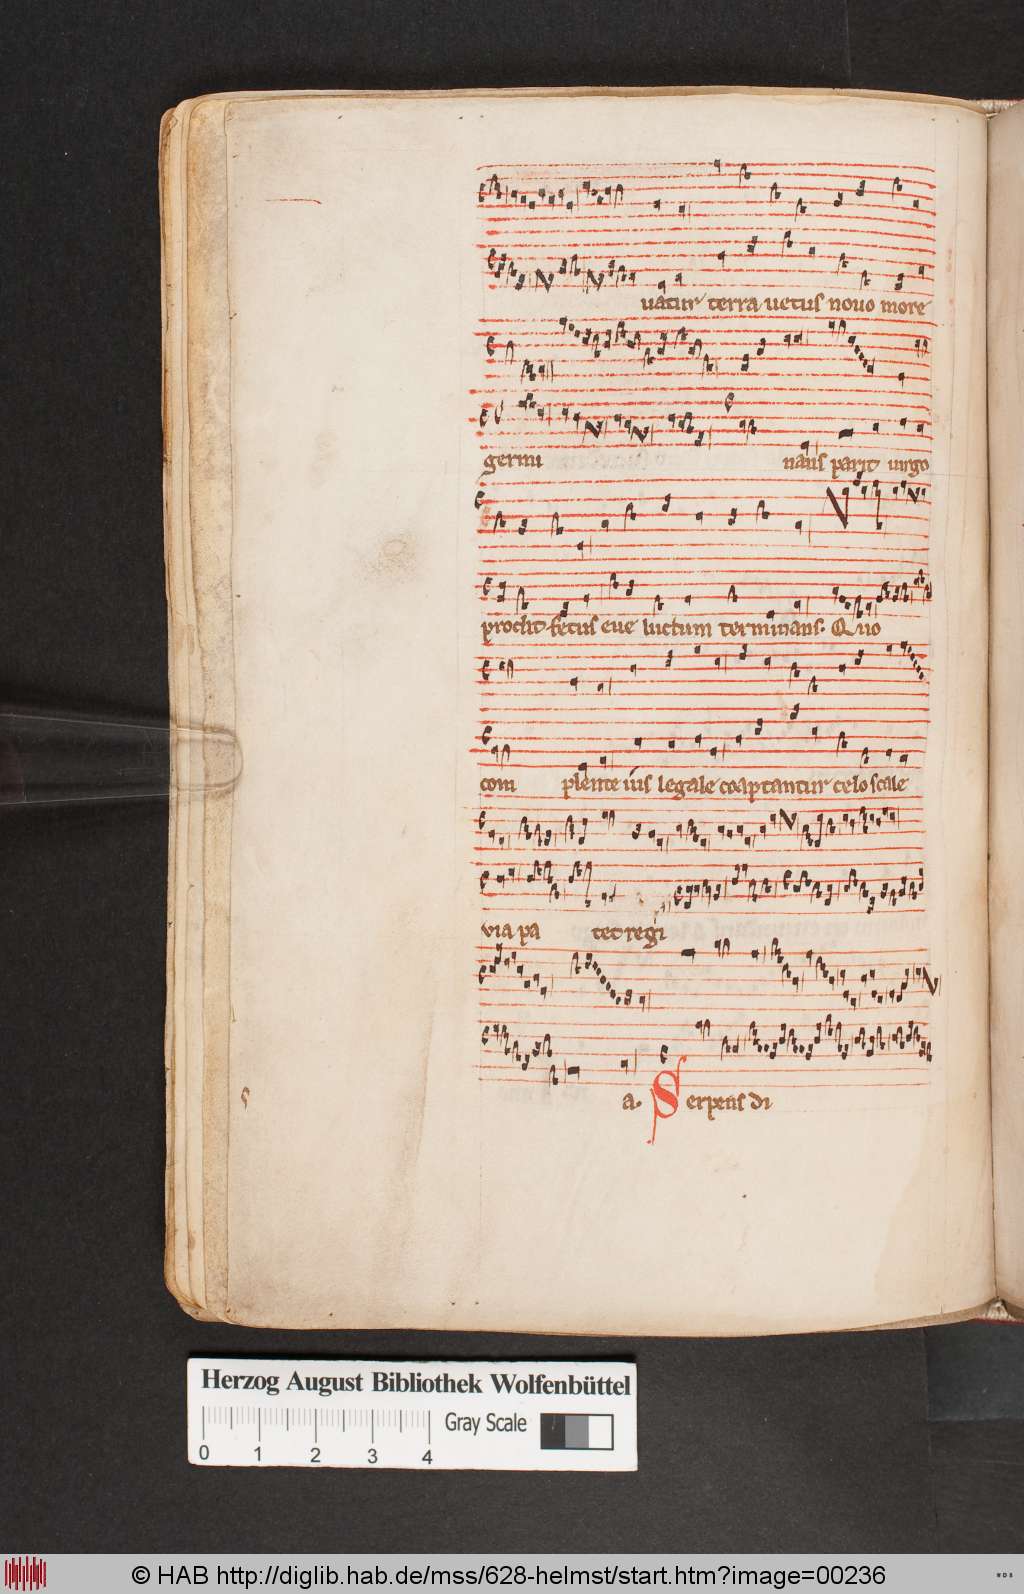 uatur terra uetus nouo more
germi nans parit uirgo
prodit fetus eue luctum terminans. Quo
com plente ius legale coaptantur celo scale
via pa tet regi
a. Serpens di
Herzog August Bibliothek Wolfenbüttel
Gray Scale
0 1 2 3 4
© HAB http://diglib.hab.de/mss/628-helmst/start.htm?image=00236